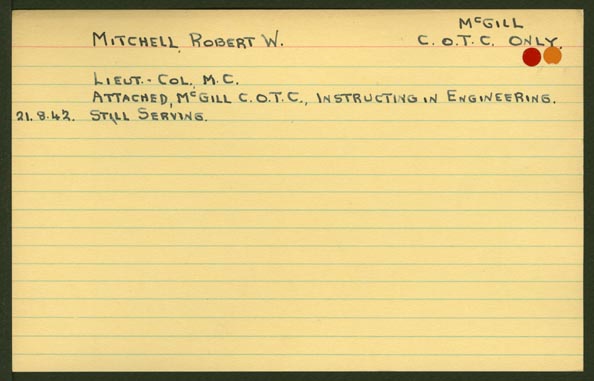 McGILL
MITCHELL, ROBERT W. C.O.T.C. ONLY.
LIEUT.-COL., M.C.
ATTACHED, McGILL C.O.T.C., INSTRUCTING IN ENGINEERING.
21.8.42. STILL SERVING.